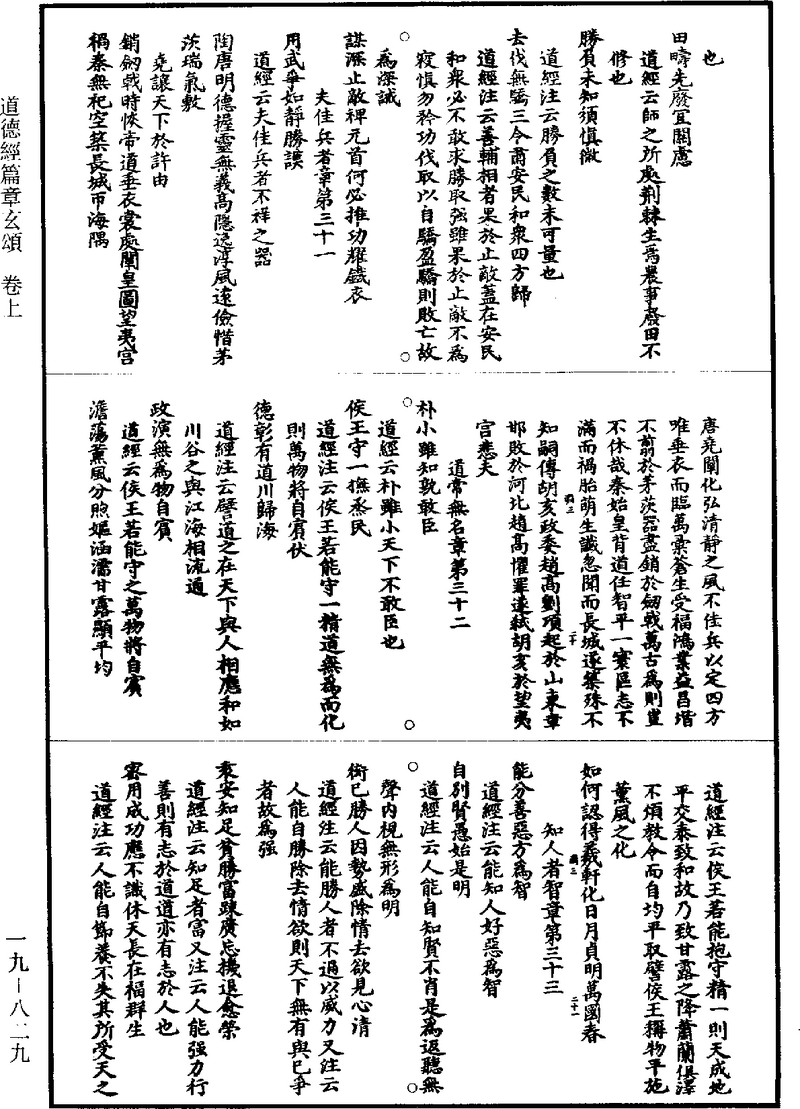 也
田疇先廢宜關慮
道經云師之所處荆棘生焉農事廢田不
修也
勝負未知須愼微
道經注云勝負之數未可量也
去伐無驕三令肅安民和衆四方歸
道經注云善輔相者果於止敵蓋在安民
和衆必不敢求勝取强雖果於止敵不爲
寇愼勿矜功伐取以自驕盈驕則敗亡故
爲深誡
謀深止敵裨元首何必推功耀鐵衣
夫佳兵者章第三十一
用武爭如靜勝謨
道經云夫佳兵者不祥之器
陶唐明德握靈無義高隱逸淳風遠儉惜茅
茨瑞氣敷
堯讓天下於許由
銷劒戟時恢帝道垂衣裳處闡皇圖望夷宫
禍秦無祀空築長城帀海隅
唐堯闡化弘清靜之風不佳兵以定四方
唯垂衣而臨萬彙蒼生受福鴻業益昌堦
不翦於茅茨器盡銷於劒戟萬古爲則豈
不休哉秦始皇背道任智平一寰區志不
滿而禍胎萌生讖忽聞而長城遂築殊不
知嗣傳胡亥政委趙高劉項起於山東章
邯敗於河北趙高懼罪遂弑胡亥於望夷
宫悲夫
道常無名章第三十二
朴小雖知孰敢臣
道經云朴雖小天下不敢臣也
侯王守一撫烝民
道經注云侯王若能守一精道無爲而化
則萬物將自賓伏
德彰有道川歸海
道經注云譬道之在天下與人相應和如
川谷之與江海相流通
政演無爲物自賓
道經云侯王若能守之萬物將自賓
澹蕩薰風分煦嫗涵濡甘露顯平均
道經注云侯王若能抱守精一則天成地
平交泰致和故乃致甘露之降蕭蘭俱澤
不煩教令而自均平取譬侯王稱物平施
薰風之化
如何認得羲軒化日月貞明萬國春
知人者智章第三十三
能分善惡方爲智
道經注云能知人好惡爲智
自别賢愚始是明
道經注云人能自知賢不肖是爲返聽無
聲内視無形爲明
銜已勝人因勢盛除情去欲見心清
道經注云能勝人者不過以威力又注云
人能自勝除去情欲則天下無有與已爭
者故爲强
袁安知足貧勝富踈廣忘機退愈榮
道經注云知足者富又注云人能强力行
善則有志於道道亦有志於人也
審用成功應不識休天長在福群生
道經注云人能自節養不失其所受天之
道德經篇章玄頌 卷上
一九－八二九